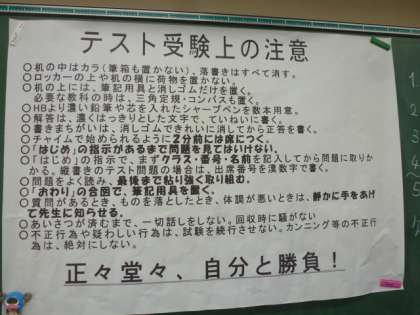 テスト受験上の注意
○机の中はカラ(筆箱も置かない)、落書きはすべて消す。
○ロッカーの上や机の横に荷物を置かない。
○机の上には、筆記用具と消しゴムだけを置く。
必要な教科の時は、三角定規・コンパスも置く。
○HBより濃い鉛筆や芯を入れたシャープペンを数本用意。
○解答は、濃くはっきりとした文字で、ていねいに書く。
○書きまちがいは、消しゴムできれいに消してから正答を書く。
○チャイムで始められるように2分前には席につく
○「はじめ」の指示があるまで問題を見てはいけない。
○「はじめ」の指示で、まずクラス・番号・名前を記入してから問題に取りか
かる。縦書きのテスト問題の場合は、出席番号を漢数字で書く。
○問題をよく読み、最後まで粘り強く取り組む。
○「おわり」の合図で、筆記用具を置く。
○質問があるとき、ものを落としたとき、体調が悪いときは、静かに手をあげ
て先生に知らせる。
○あいさつが済むまで、一切話をしない。回収時に騒がない
○不正行為や疑わしい行為は、試験を続行させない。カンニング等の不正行
為は、絶対にしない。
正々堂々、自分と勝負!
1.
2
3
4
5